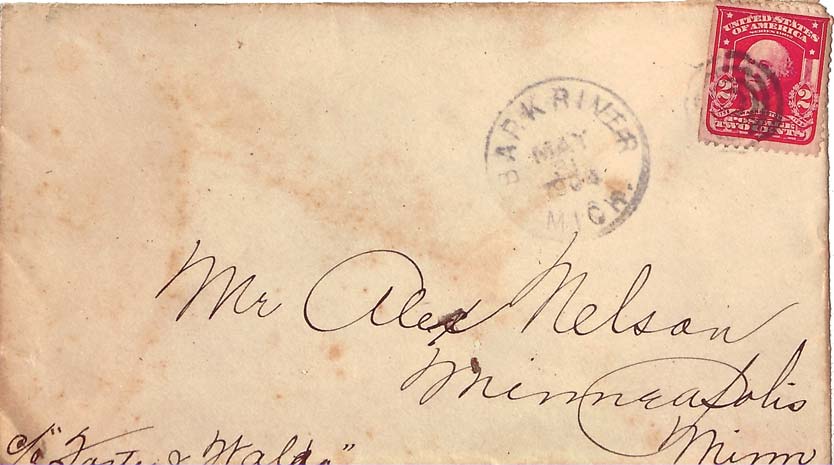 UNITED STATES
OF AMERICA
SERIES 1902
2 2
POSTAGE
TWO CENTS
BARK RIVER
MAY
21
MICH.
Mr Alex Nelson
Minneapolis
Minn
c/o "Foster & Waldo"